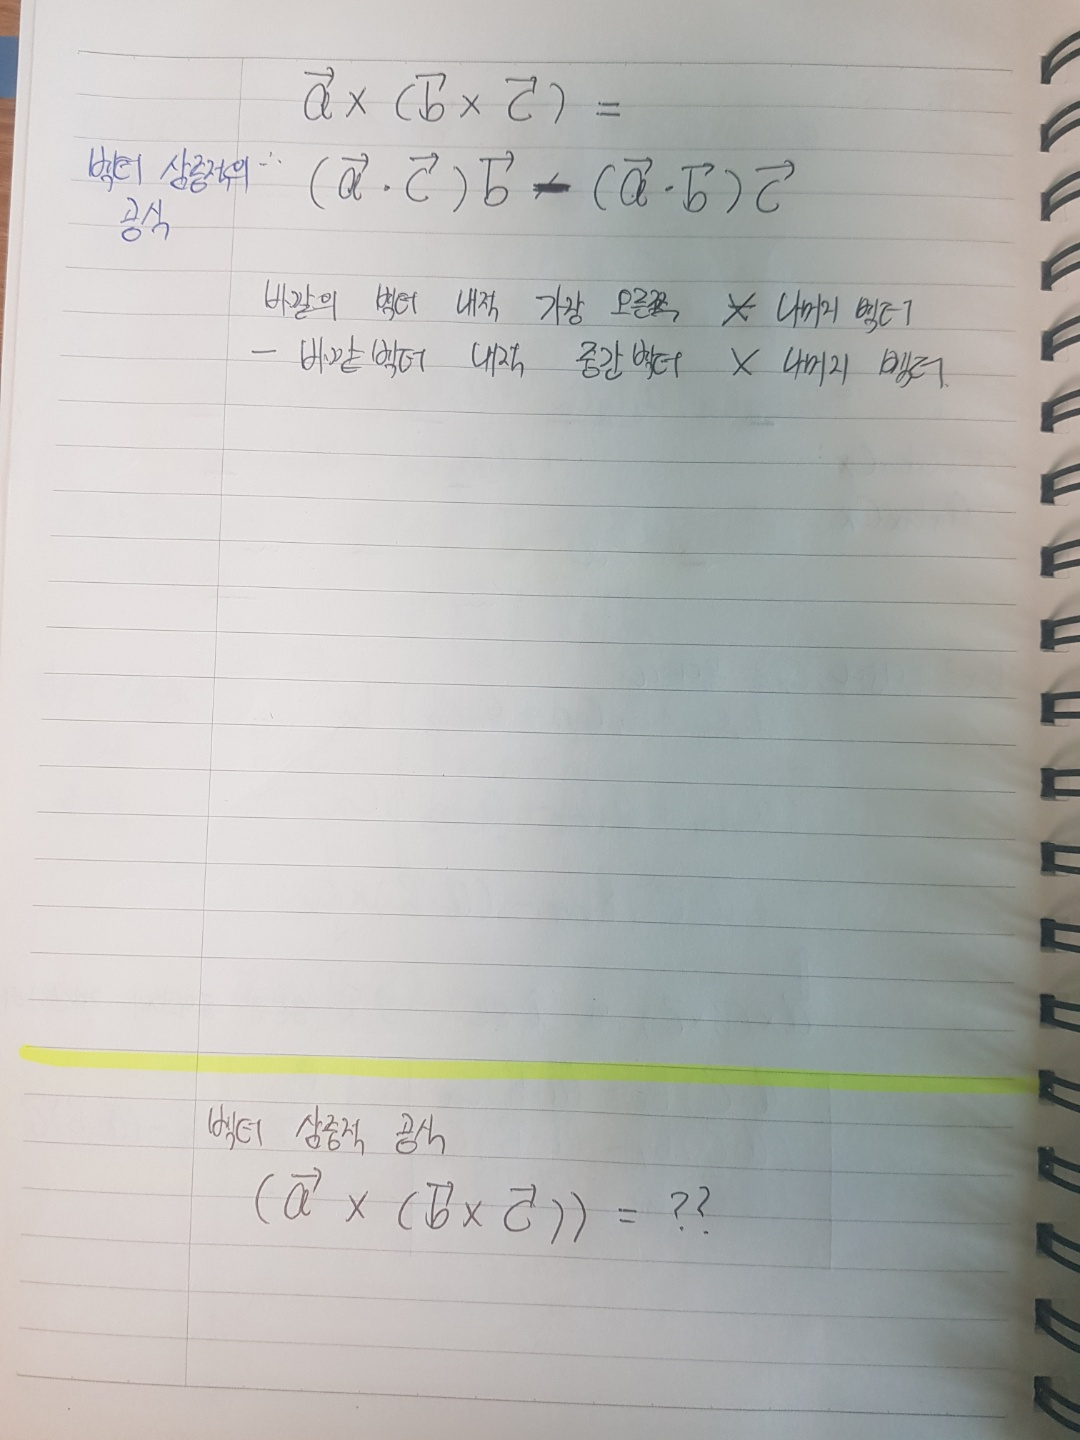 a⃗ × (b⃗ × c⃗) =
벡터 삼중적의 ∴ (a⃗ · c⃗) b⃗ - (a⃗ · b⃗) c⃗
공식
바깥의 벡터 내적 가장 오른쪽 × 나머지 벡터
- 바깥 벡터 내적 중간 벡터 × 나머지 벡터
벡터 삼중적 공식
(a⃗ × (b⃗ × c⃗)) = ??